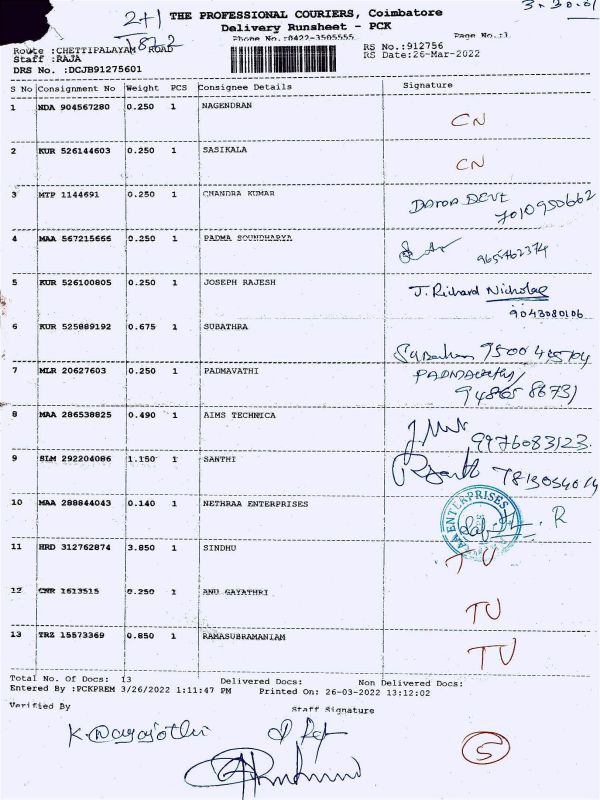 3.30.01
2+1
THE PROFESSIONAL COURIERS, Coimbatore
Delivery Runsheet - PCK
Phone No.:0422-3505555
Page No.:1
Route :CHETTIPALAYAM ROAD
Staff :RAJA
DRS No. :DCJB91275601
RS No.:912756
RS Date:26-Mar-2022
S No Consignment No Weight PCS Consignee Details Signature
1 NDA 904567280 0.250 1 NAGENDRAN CN
2 KUR 526144603 0.250 1 SASIKALA CN
3 MTP 1144691 0.250 1 CHANDRA KUMAR
7010950662
4 MAA 567215666 0.250 1 PADMA SOUNDHARYA
5 KUR 526100805 0.250 1 JOSEPH RAJESH J. Richard Nicholas
9043080106
6 KUR 525889192 0.675 1 SUBATHRA
7 MLR 20627603 0.250 1 PADMAVATHI
8 MAA 286538825 0.490 1 AIMS TECHNICA
9976083123
9 SLM 292204086 1.150 1 SANTHI
10 MAA 288844043 0.140 1 NETHRAA ENTERPRISES
AA ENTERPRISES
R
11 HRD 312762874 3.850 1 SINDHU TU
12 CNR 1613515 0.250 1 ANU GAYATHRI TU
13 TRZ 15573369 0.850 1 RAMASUBRAMANIAM TU
Total No. Of Docs: 13 Delivered Docs: Non Delivered Docs:
Entered By :PCKPREM 3/26/2022 1:11:47 PM Printed On: 26-03-2022 13:12:02
Verified By Staff Signature
5